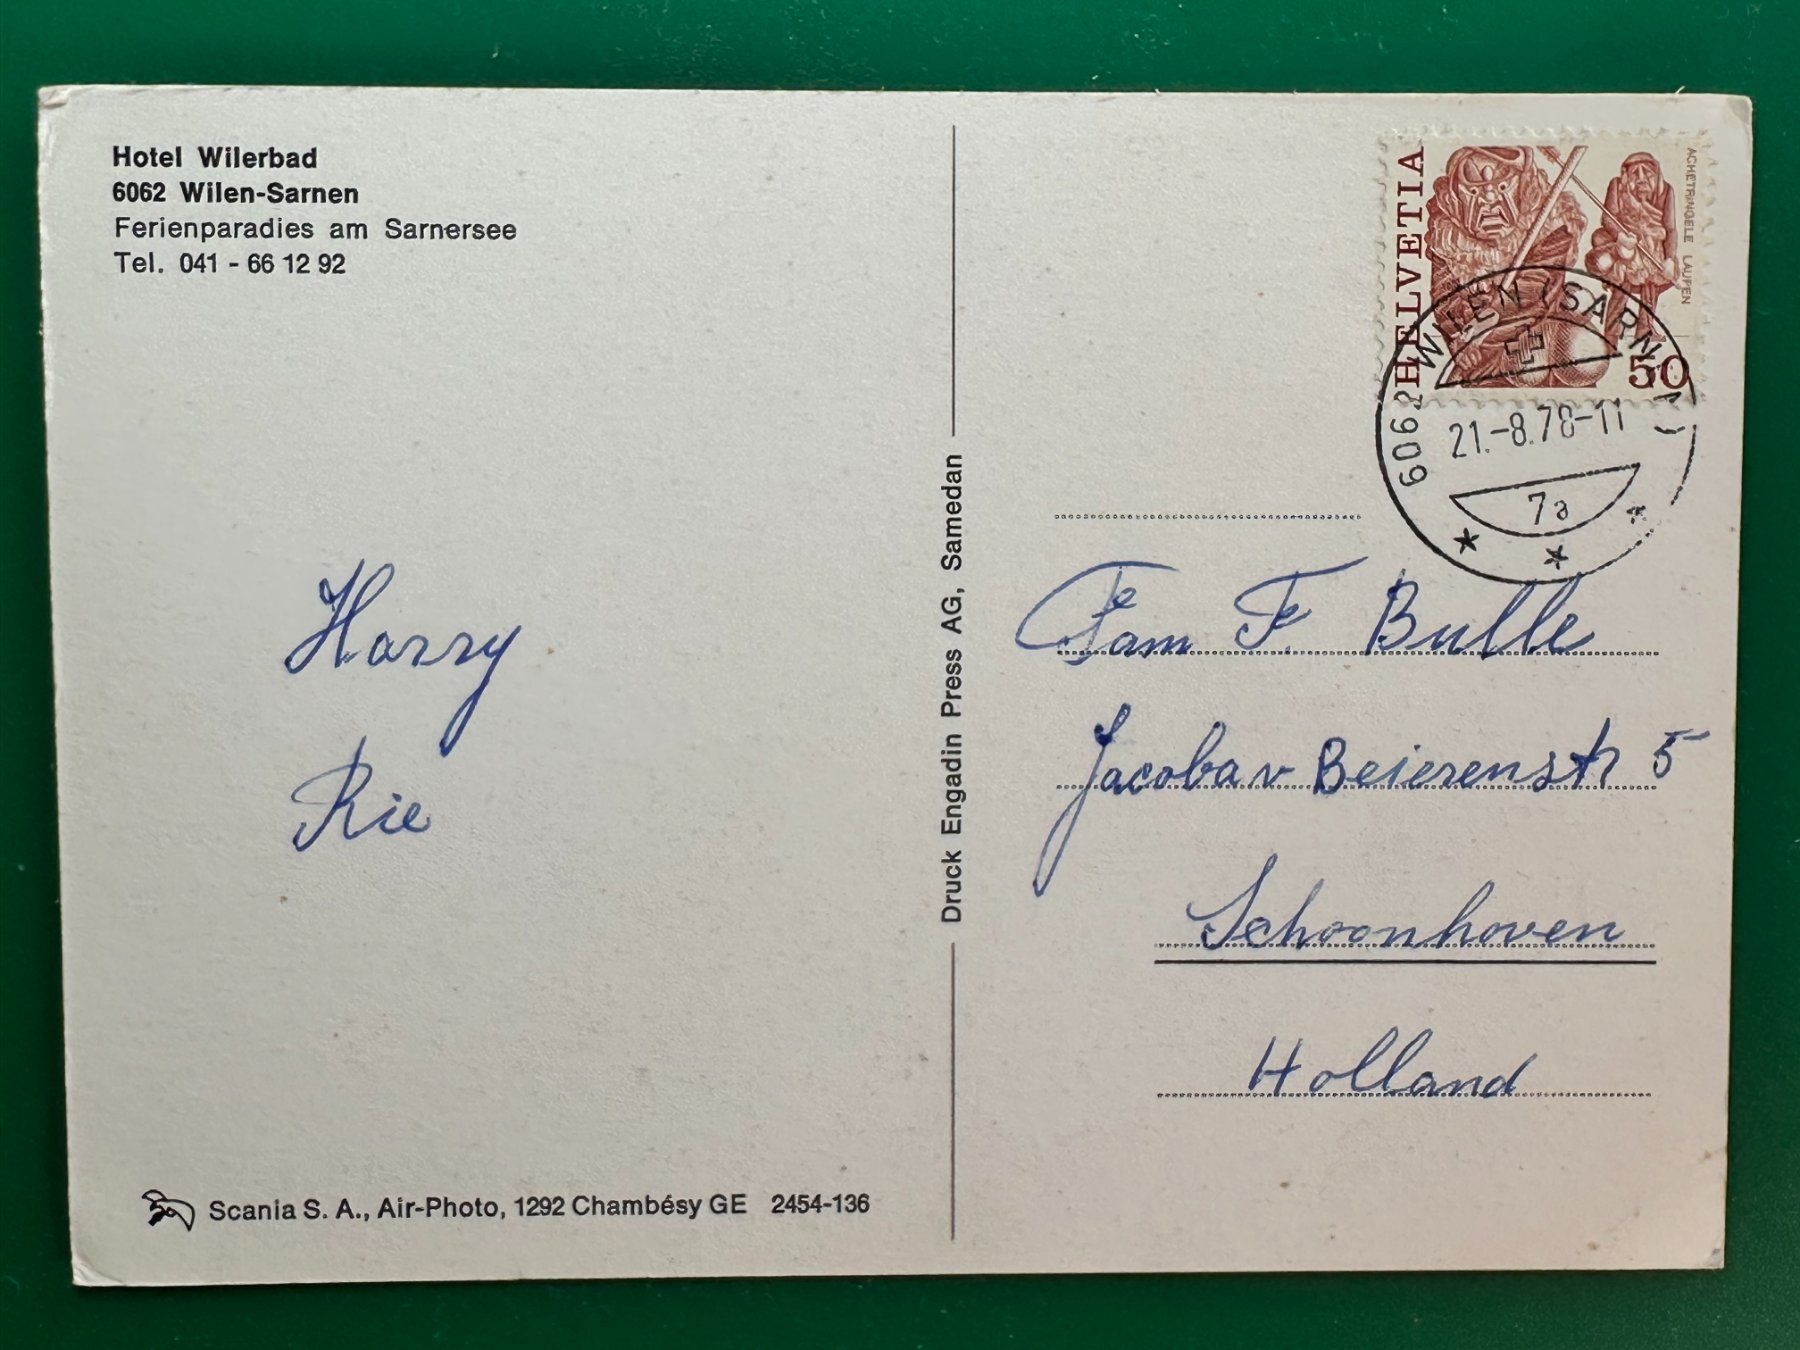 Hotel Wilerbad
6062 Wilen-Sarnen
Ferienparadies am Sarnersee
Tel. 041 - 66 12 92
Harry
Rie
Scania S. A., Air-Photo, 1292 Chambésy GE 2454-136
Druck Engadin Press AG, Samedan
HELVETIA
ACHETRINGELE LAUPEN
50
6062 WILEN (SARNEN)
21.-8.78-11
7a
Fam F. Bulle
Jacoba v Beierenstr 5
Schoonhoven
Holland